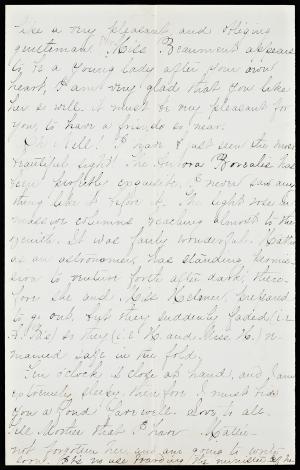 like a very pleasant and obliging
gentleman. Miss Beaumont appears
to be a young lady after your own
heart, I am very glad that you like
her so well. it must be very pleasant for
you, to have a friend so near.
Oh Nell! I have just seen the most
beautiful sight! The Aurora Borealis has
been perfectly exquisite, I never saw any
thing like it before. The light rose in
massive columns reaching almost to the
zenith. It was fairly wonderful. Hattie
as an astronomer, has standing permis-
sion to venture forth after dark; there-
fore she and Miss prepared
to go out, but they suddenly faded (i.e.
A. B's) so they (i.e. H. and Miss H.) re-
mained safe in the fold.
Ten o'clock is close at hand, and I am
extremely sleepy, therefore I must bid
you a fond farewell. Love to all.
Tell Mother that I have Mattie
not forgotten her and am going to write
soon. no use the